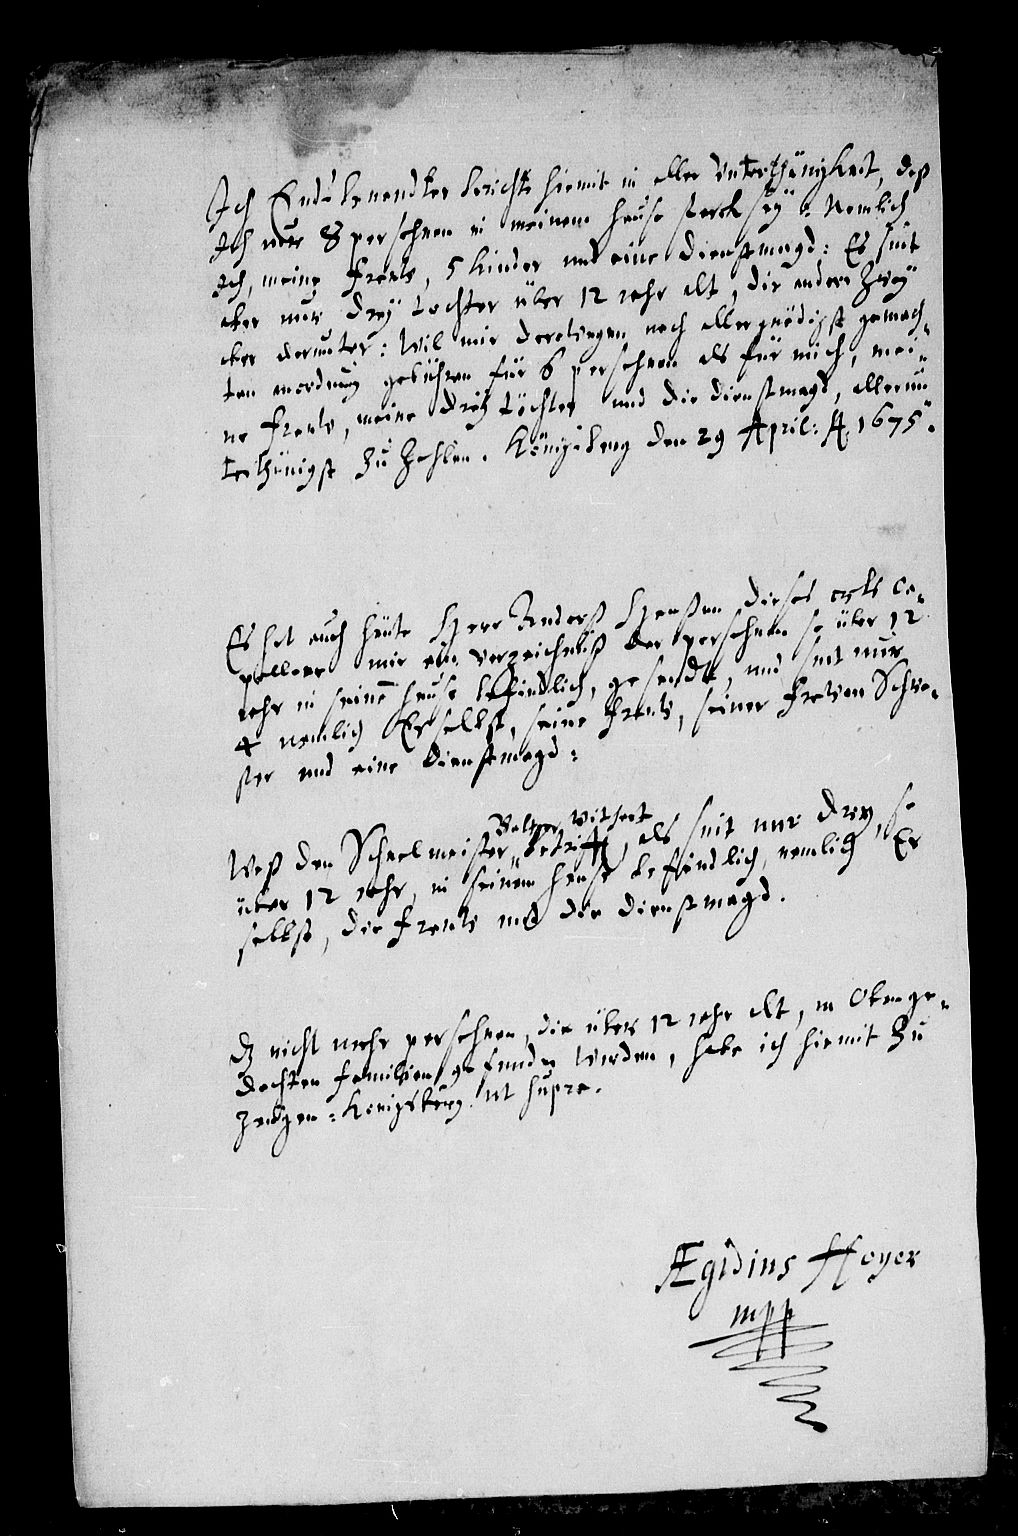 Ich Endsbenendter berichte hiemit in aller Unterthänigkeit, daß
Ich nur 8 persohnen in meinem hause starck seÿ: Nemlich
Ich, meine fraw, 5 kinder und eine dienstmagd: Es sint
aber nur dreÿ tochter über 12 iahr alt, die andere zweÿ
aber darunter: Wil mir derowegen nach allergnädigst gemach-
ten anordnung gebühren für 6 persohnen als für mich, mei-
ne fraw, meine dreÿ töchter und die dienstmagd, allerun-
terthänigst zu zahlen. Königsberg den 29 April: A. 1675.
Es hat auch heute Herr Anders Hanßen dieses orts Ca-
pellan mir ein verzeichniß der persohnen so über 12
iahr in seinem hause befindlich, gesandt, und sint nur
4 nemlich Er selbst, seine fraw, seiner frawen Schwe-
ster und eine dienstmagd:
Balzer Withart
Waß den Schuelmeister betrifft, als sint nur dreÿ, so
über 12 iahr, in seinem hause befindlich, nemlich Er
selbst, die fraw und die dienstmagd.
Dz nicht mehr persohnen, die über 12 iahr alt, in Obenge-
dachten familien gefunden werden, habe ich hiemit zu
zeugen: Königsberg ut supra.
Ægidius Hoyer
mpp